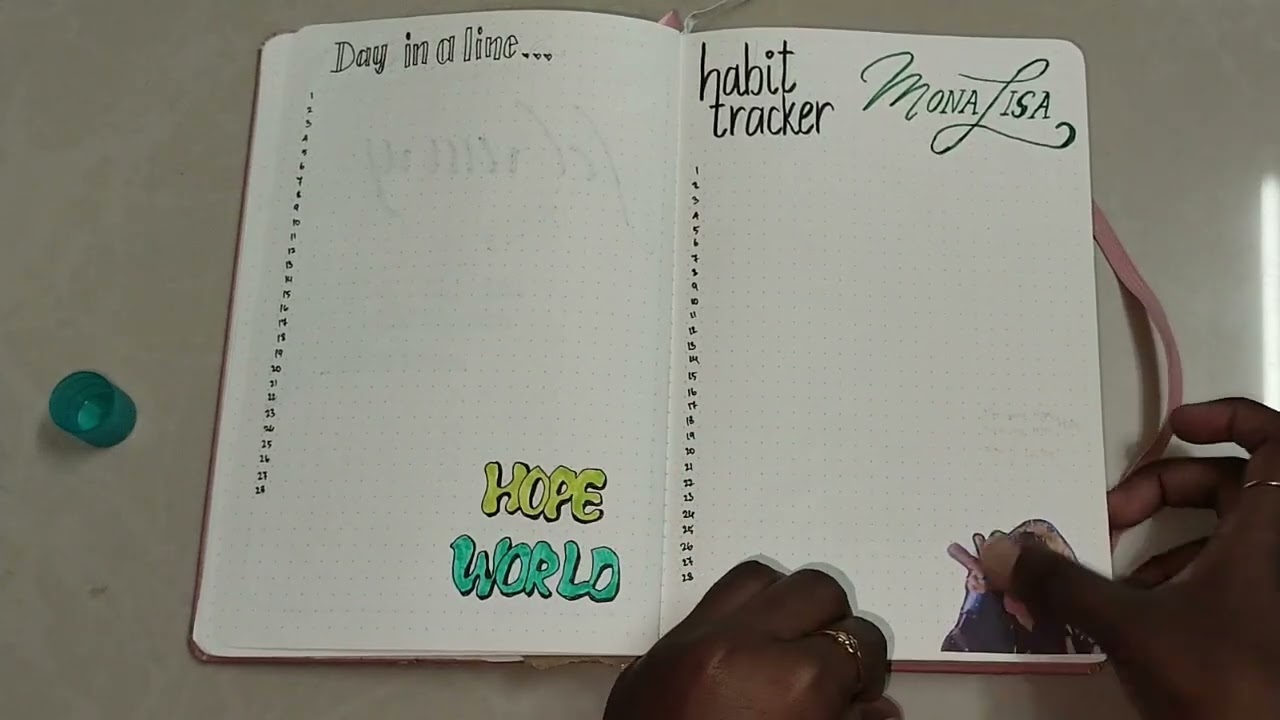 Day in a line...
1
2
3
4
5
6
7
8
9
10
11
12
13
14
15
16
17
18
19
20
21
22
23
24
25
26
27
28
HOPE
WORLD
habit
tracker
MONA LISA
1
2
3
4
5
6
7
8
9
10
11
12
13
14
15
16
17
18
19
20
21
22
23
24
25
26
27
28